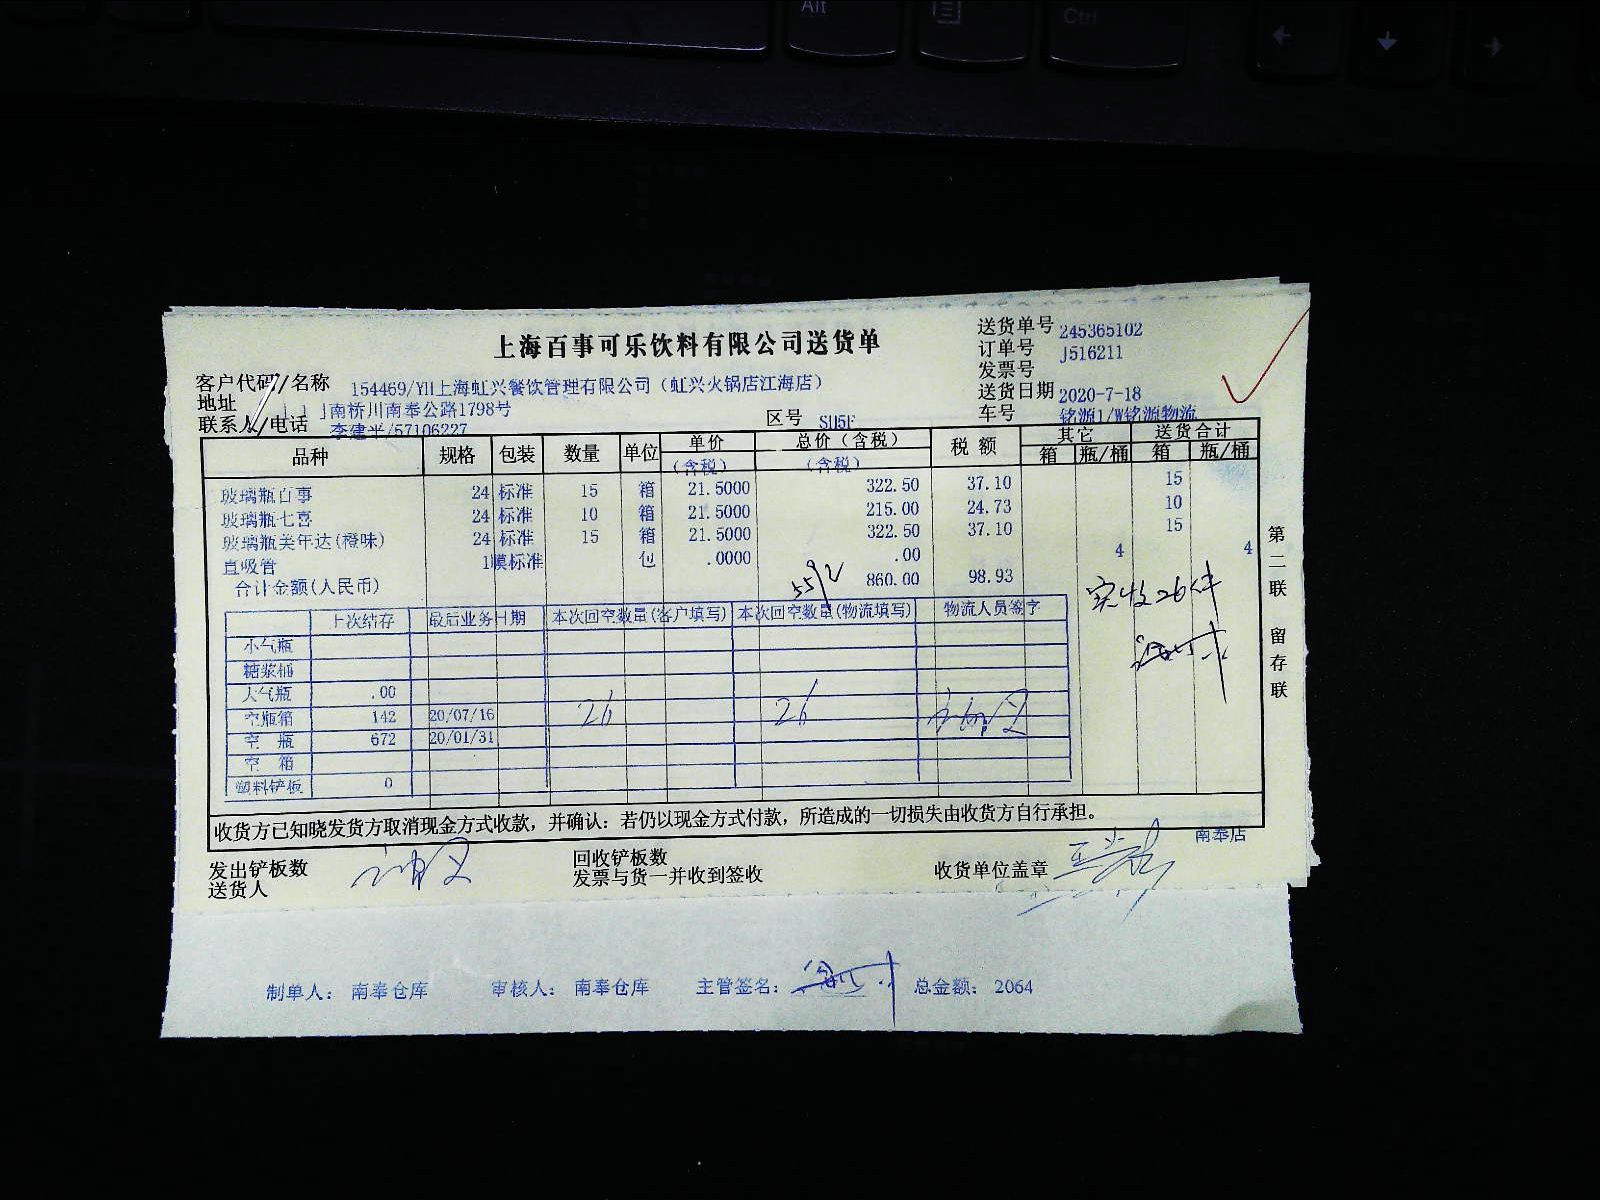 Alt
Ctrl
上海百事可乐饮料有限公司送货单
送货单号 245365102
订单号 J516211
发票号
送货日期 2020-7-18
车号 铭源1/W铭源物流
客户代码/名称 154469/YH上海虹兴餐饮管理有限公司(虹兴火锅店江海店)
地址 南桥川南奉公路1798号
联系人/电话 李建平/57106227
区号 SU5F
品种 规格 包装 数量 单位 单价 (含税) 总价(含税) (含税) 税额 其它 箱 瓶/桶 送货合计 箱 瓶/桶
玻璃瓶百事 24 标准 15 箱 21.5000 322.50 37.10 15
玻璃瓶七喜 24 标准 10 箱 21.5000 215.00 24.73 10
玻璃瓶美年达(橙味) 24 标准 15 箱 21.5000 322.50 37.10 15
直吸管 1 膜标准 包 .0000 .00 4 4
合计金额(人民币) 860.00 98.93
559.2
实收26件
上次结存 最后业务日期 本次回空数量(客户填写) 本次回空数量(物流填写) 物流人员签字
小气瓶
糖浆桶
大气瓶 .00
空瓶箱 142 20/07/16 26 26
空瓶 672 20/01/31
空箱
塑料铲板 0
第二联 留存联
收货方已知晓发货方取消现金方式收款，并确认：若仍以现金方式付款，所造成的一切损失由收货方自行承担。
南奉店
发出铲板数
回收铲板数
送货人
发票与货一并收到签收
收货单位盖章
制单人： 南奉仓库 审核人： 南奉仓库 主管签名： 总金额： 2064